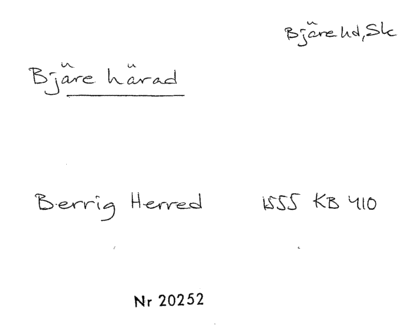 Bjäre hd, Sk
Bjäre härad
Berrig Herred 1555 KB 410
Nr 20252